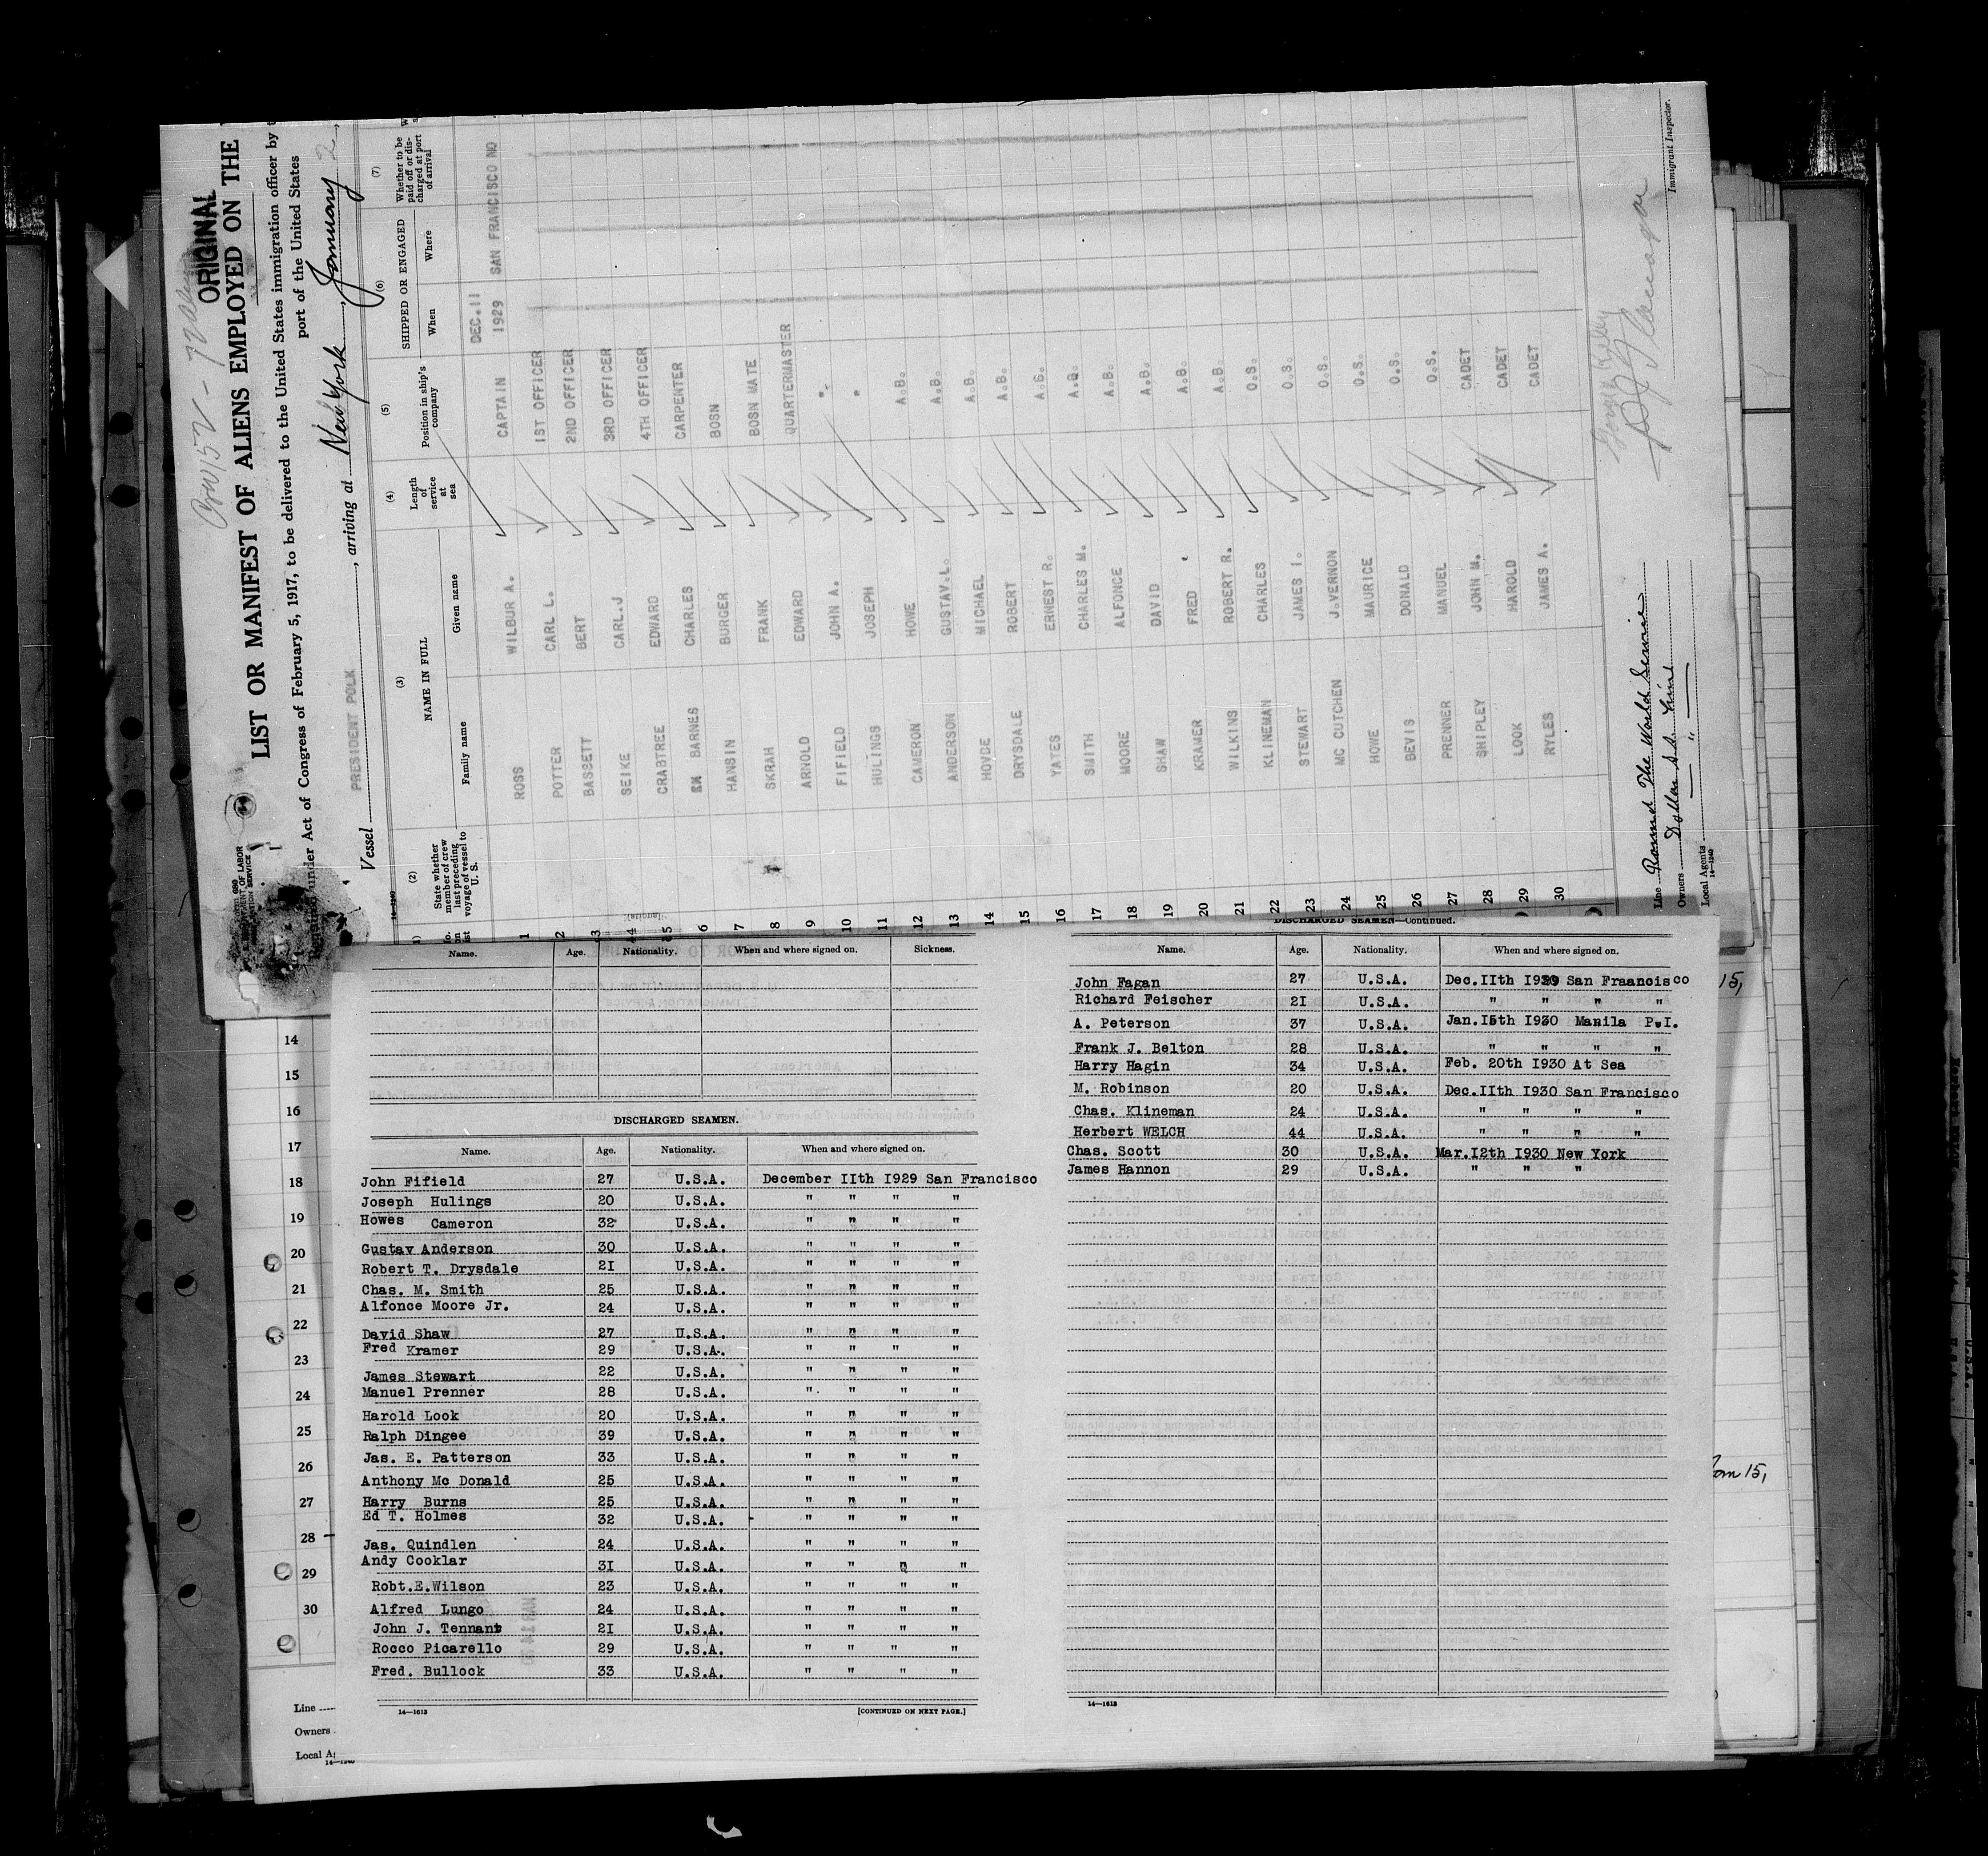 ORIGINAL
LIST OR MANIFEST OF ALIENS EMPLOYED ON THE
under Act of Congress of February 5, 1917, to be delivered to the United States immigration officer by
port of the United States
Vessel PRESIDENT POLK, arriving at New York, January 2,
(2) (3) (4) (5) (6) (7)
State whether member of crew last preceding voyage of vessel to U. S.
NAME IN FULL
Family name Given name
Length of service at sea
Position in ship's company
SHIPPED OR ENGAGED
When Where
Whether to be paid off or discharged at port of arrival
1 ROSS WILBUR A. CAPTAIN DEC.11 1929 SAN FRANCISCO NO
2 POTTER CARL L. 1ST OFFICER
3 BASSETT BERT 2ND OFFICER
4 SEIKE CARL.J 3RD OFFICER
5 CRABTREE EDWARD 4TH OFFICER
6 BARNES CHARLES CARPENTER
7 HANSIN BURGER BOSN
8 SKRAH FRANK BOSN MATE
9 ARNOLD EDWARD QUARTERMASTER
10 FIFIELD JOHN A. "
11 HULINGS JOSEPH "
12 CAMERON HOWE A.B.
13 ANDERSON GUSTAV.L. A.B.
14 HOVDE MICHAEL A.B.
15 DRYSDALE ROBERT A.B.
16 YATES ERNEST R. A.B.
17 SMITH CHARLES M. A.B.
18 MOORE ALFONCE A.B.
19 SHAW DAVID A.B.
20 KRAMER FRED A.B.
21 WILKINS ROBERT R. A.B.
22 KLINEMAN CHARLES O.S.
23 STEWART JAMES I. O.S.
24 MC CUTCHEN J.VERNON O.S.
25 HOWE MAURICE O.S.
26 BEVIS DONALD O.S.
27 PRENNER MANUEL O.S.
28 SHIPLEY JOHN M. CADET
29 LOOK HAROLD CADET
30 RYLES JAMES A. CADET
Line Round The World Service
Owners Dollar S.S. Line
Local Agents " 
14—1240
Immigrant Inspector.
Name. Age. Nationality. When and where signed on. Sickness.
DISCHARGED SEAMEN.
Name. Age. Nationality. When and where signed on.
John Fifield 27 U.S.A. December IIth I929 San Francisco
Joseph Hulings 20 U.S.A. " " " "
Howes Cameron 32 U.S.A. " " " "
Gustav Anderson 30 U.S.A. " " " "
Robert T. Drysdale 2I U.S.A. " " " "
Chas. M. Smith 25 U.S.A. " " " "
Alfonce Moore Jr. 24 U.S.A. " " " "
David Shaw 27 U.S.A. " " " "
Fred Kramer 29 U.S.A. " " " "
James Stewart 22 U.S.A. " " " "
Manuel Prenner 28 U.S.A. " " " "
Harold Look 20 U.S.A. " " " "
Ralph Dingee 39 U.S.A. " " " "
Jas. E. Patterson 33 U.S.A. " " " "
Anthony Mc Donald 25 U.S.A. " " " "
Harry Burns 25 U.S.A. " " " "
Ed T. Holmes 32 U.S.A. " " " "
Jas. Quindlen 24 U.S.A. " " " "
Andy Cooklar 3I U.S.A. " " " "
Robt.E.Wilson 23 U.S.A. " " " "
Alfred Lungo 24 U.S.A. " " " "
John J. Tennant 2I U.S.A. " " " "
Rocco Picarello 29 U.S.A. " " " "
Fred. Bullock 33 U.S.A. " " " "
14—1613 [CONTINUED ON NEXT PAGE.]
DISCHARGED SEAMEN—Continued.
Name. Age. Nationality. When and where signed on.
John Fagan 27 U.S.A. Dec.IIth I929 San Fraancisco
Richard Feischer 2I U.S.A. " " " "
A. Peterson 37 U.S.A. Jan.I5th I930 Manila P.I.
Frank J. Belton 28 U.S.A. " " " "
Harry Hagin 34 U.S.A. Feb. 20th I930 At Sea
M. Robinson 20 U.S.A. Dec.IIth I930 San Francisco
Chas. Klineman 24 U.S.A. " " " "
Herbert WELCH 44 U.S.A. " " " "
Chas. Scott 30 U.S.A. Mar.I2th I930 New York
James Hannon 29 U.S.A. " " "
14—1613
14
15
16
17
18
19
20
21
22
23
24
25
26
27
28
29
30
Line
Owners
Local A
15,
15,